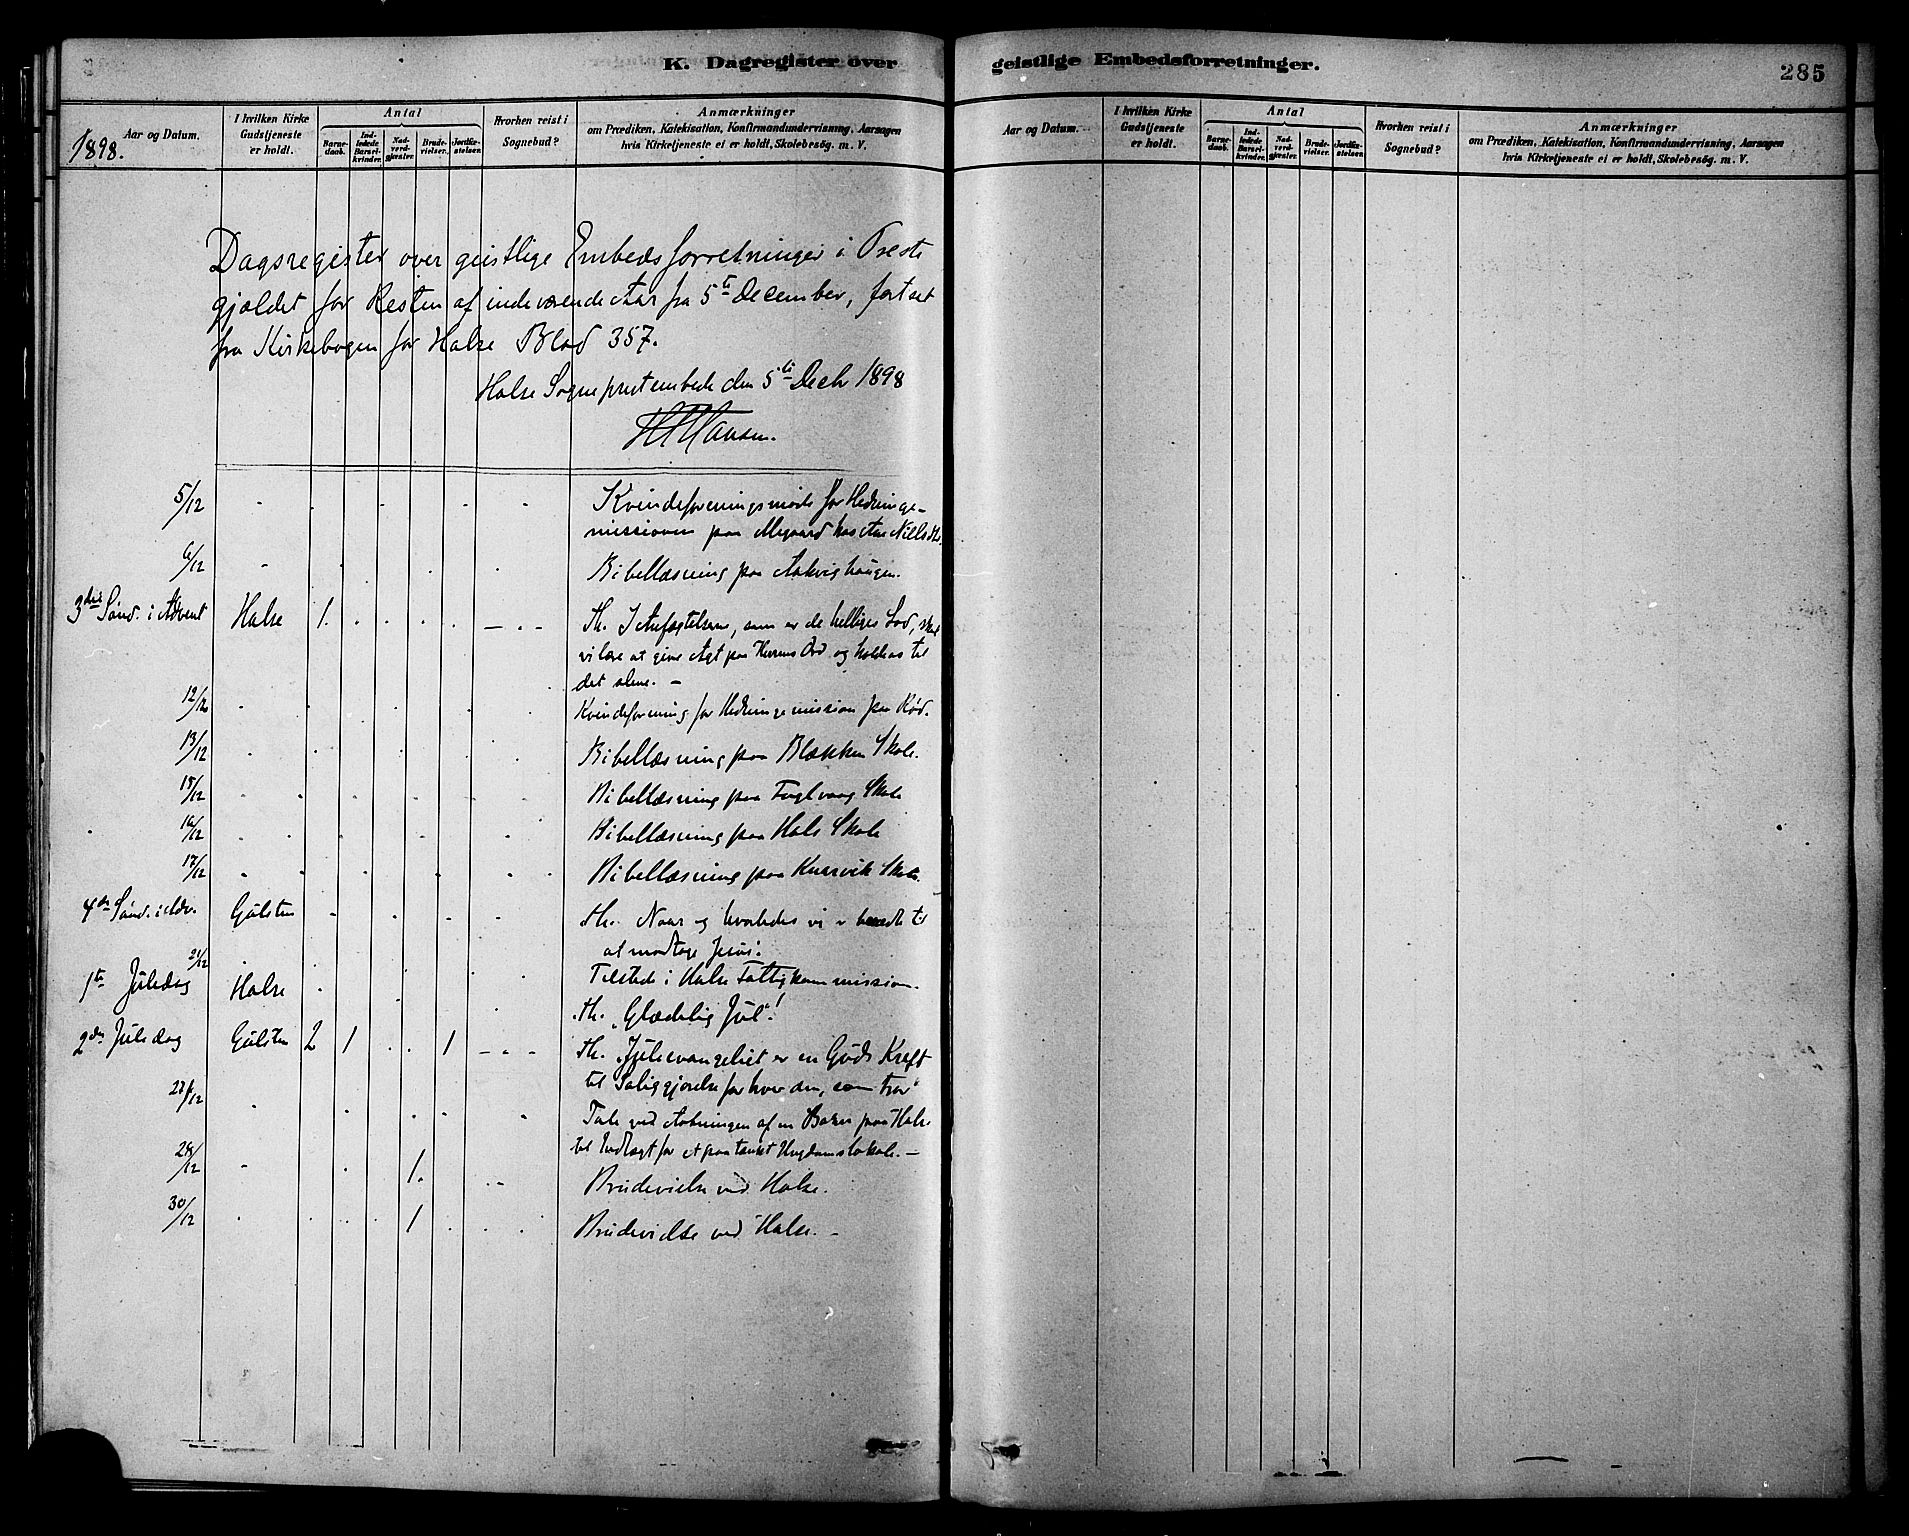 K. Dagregister over geistlige Embedsforretninger.
285
1898.
Aar og Datum.
I hvilken Kirke Gudstjeneste er holdt.
Antal
Barnedaab.
Indledede Barselkvinder.
Nadverdgjæster.
Brudevielser.
Jordfæstelsen
Hvorhen reist i Sognebud?
Anmærkninger
om Prædiken, Katekisation, Konfirmandundervisning, Aarsagen
hvis Kirketjeneste ei er holdt, Skolebesøg. m. V.
Aar og Datum.
I hvilken Kirke Gudstjeneste er holdt.
Antal
Barnedaab.
Indledede Barselkvinder.
Nadverdgjæster.
Brudevielser.
Jordfæstelsen
Hvorhen reist i Sognebud?
Anmærkninger
om Prædiken, Katekisation, Konfirmandundervisning, Aarsagen
hvis Kirketjeneste ei er holdt, Skolebesøg. m. V.
Dagsregister over geistlige Embedsforretninger i Preste
gjældet for Resten af indeværende Aar fra 5te December, fortsat
fra Kirkebogen for Halse Blad 357.
Halse Sogneprestembede den 5te Decbr 1898
Hansen.
5/12 Kvindeforeningsmøde for Hedninge-
missionen paa hos
6/12 Bibellæsning paa Aakvighaugen.
3die Sønd. i Advent Halse 1. Th. I Anfægtelserne, som er de helliges Lod, skal
vi lære at give Agt paa Herrens Ord og holde os til
det alene. –
12/12 Kvindeforening for Hedningemission paa Rød.
13/12 Bibellæsning paa Blekken Skole.
15/12 Bibellæsning paa Fuglvaag Skole
16/12 Bibellæsning paa Hals Skole
17/12 Bibellæsning paa Skole.
4de Sønd. i Adv. Gulsten Th. Naar og hvorledes vi er beredte til
at modtage Jesus.
21/12 Tilstede i Halse Fattigkommission.
1te Juledag Halse Th. "Glædelig Jul"!
2den Juledag Gulsten 2 1 1 Th. "Juleevangeliet er en Guds Kraft
til Saliggjørelse for hver den, som tror"
Tale ved Aabningen af en Bazar paa Halse
til Indtægt for et paatænkt Ungdomslokale. –
29/12 1. Brudevielse ved Halse.
30/12 1 Brudevielse ved Halse. –